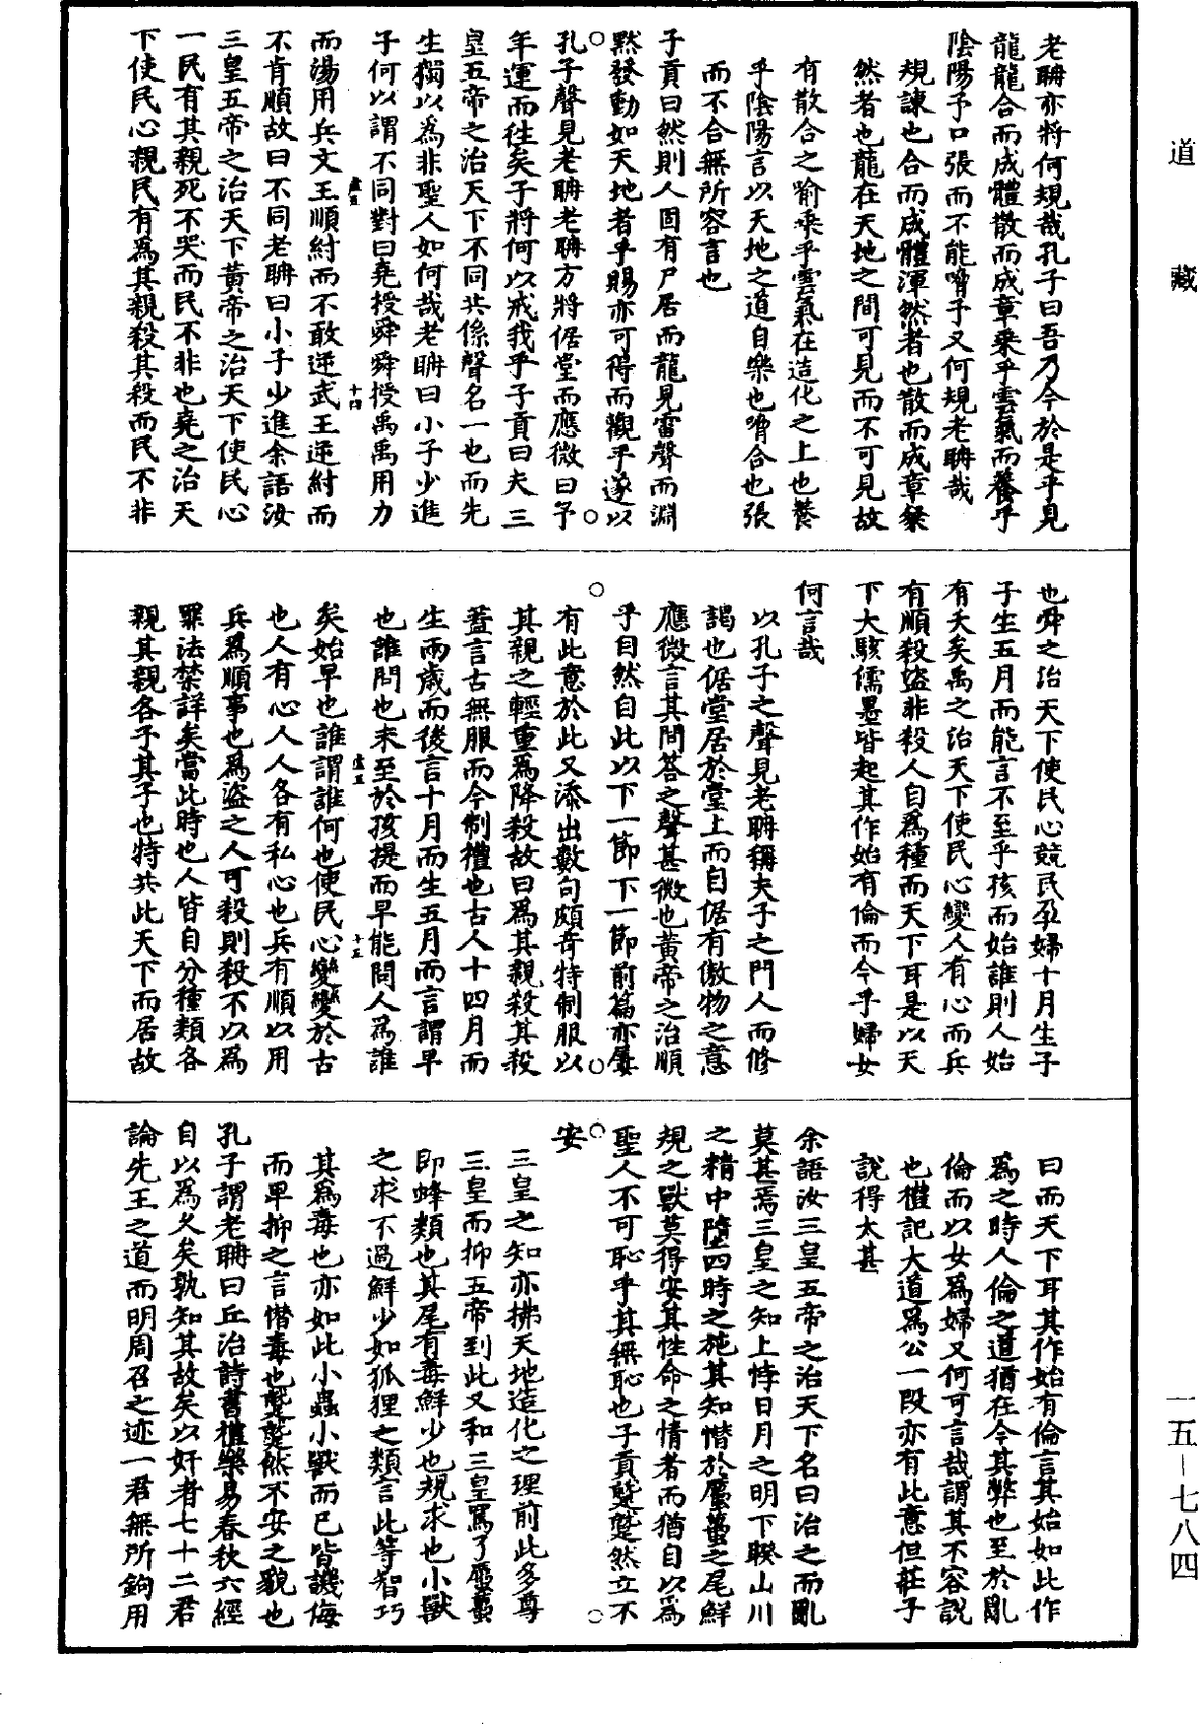 道藏
老聃亦將何規哉孔子曰吾乃今於是乎見
龍龍合而成體散而成章乘乎雲氣而養乎
陰陽予口張而不能嗋予又何規老聃哉
規諫也合而成體渾然者也散而成章粲
然者也龍在天地之間可見而不可見故
有散合之喻乘乎雲氣在造化之上也養
乎陰陽言以天地之道自樂也嗋合也張
而不合無所容言也
子貢曰然則人固有尸居而龍見雷聲而淵
默發動如天地者乎賜亦可得而觀乎遂以
孔子聲見老聃老聃方將倨堂而應微曰予
年運而往矣子將何以戒我乎子貢曰夫三
皇五帝之治天下不同其係聲名一也而先
生獨以為非聖人如何哉老聃曰小子少進
子何以謂不同對曰堯授舜舜授禹禹用力
而湯用兵文王順紂而不敢逆武王逆紂而
不肯順故曰不同老聃曰小子少進余語汝
三皇五帝之治天下黃帝之治天下使民心
一民有其親死不哭而民不非也堯之治天
下使民心親民有為其親殺其殺而民不非
也舜之治天下使民心競民孕婦十月生子
子生五月而能言不至乎孩而始誰則人始
有夭矣禹之治天下使民心變人有心而兵
有順殺盜非殺人自為種而天下耳是以天
下大駭儒墨皆起其作始有倫而今乎婦女
何言哉
以孔子之聲見老聃稱夫子之門人而修
謁也倨堂居於堂上而自倨有傲物之意
應微言其問答之聲甚微也黃帝之治順
乎自然自此以下一節下一節前篇亦屢
有此意於此又添出數句頗奇特制服以
其親之輕重為降殺故曰為其親殺其殺
蓋言古無服而今制禮也古人十四月而
生兩歲而後言十月而生五月而言謂早
也誰問也未至於孩提而早能問人為誰
矣始早也誰謂誰何也使民心變變於古
也人有心人人各有私心也兵有順以用
兵為順事也為盜之人可殺則殺不以為
罪法禁詳矣當此時也人皆自分種類各
親其親各子其子也特共此天下而居故
曰而天下耳其作始有倫言其始如此作
為之時人倫之道猶在今其弊也至於亂
倫而以女為婦又何可言哉謂其不容說
也禮記大道為公一段亦有此意但莊子
說得太甚
余語汝三皇五帝之治天下名曰治之而亂
莫甚焉三皇之知上悖日月之明下睽山川
之精中墮四時之施其知憯於蠆蠆之尾鮮
規之獸莫得安其性命之情者而猶自以為
聖人不可恥乎其無恥也子貢蹵蹵然立不
安
三皇之知亦拂天地造化之理前此多尊
三皇而抑五帝到此又和三皇罵了蠆蠆
即蜂類也其尾有毒鮮少也規求也小獸
之求不過鮮少如狐狸之類言此等智巧
其為毒也亦如此小蟲小獸而已皆譏侮
而卑抑之言憯毒也蹵蹵然不安之貌也
孔子謂老聃曰丘治詩書禮樂易春秋六經
自以為久矣孰知其故矣以奸者七十二君
論先王之道而明周召之迹一君無所鉤用
一五－七八四